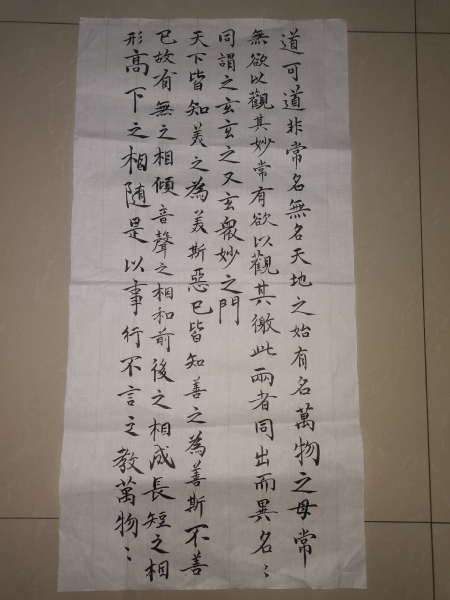 道可道非常名無名天地之始有名萬物之母常
無欲以觀其妙常有欲以觀其徼此兩者同出而異名〻
同謂之玄玄之又玄衆妙之門
天下皆知美之為美斯惡已皆知善之為善斯不善
已故有無之相傾音聲之相和前後之相成長短之相
形高下之相隨是以事行不言之教萬物〻